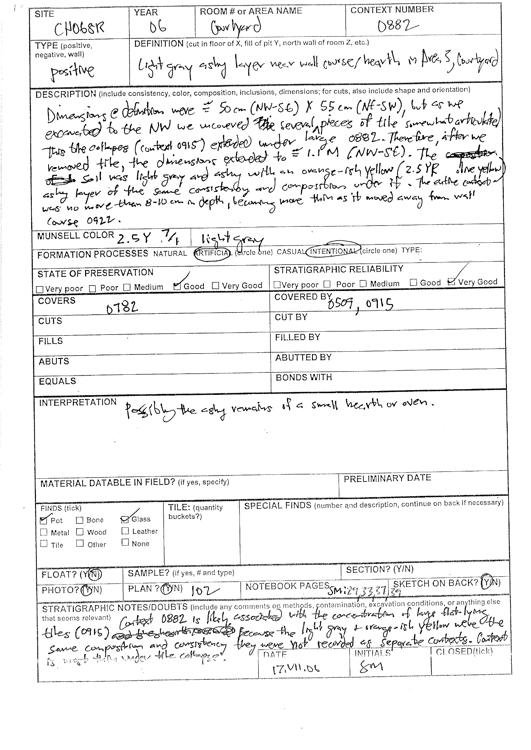 SITE YEAR ROOM # or AREA NAME CONTEXT NUMBER
CH06SR 06 Courtyard 0882
TYPE (positive, negative, wall) DEFINITION (cut in floor of X, fill of pit Y, north wall of room Z, etc.)
positive Light gray ashy layer near wall course/hearth in Area 3, Courtyard
DESCRIPTION (include consistency, color, composition, inclusions, dimensions; for cuts, also include shape and orientation)
Dimensions @ definition were ≅ 50cm (NW-SE) X 55cm (NE-SW), but as we
excavated to the NW we uncovered several large pieces of tile somewhat articulated
This tile collapse (context 0915) extended under 0882. Therefore, after we
removed tile, the dimensions extended to ≅ 1.1m (NW-SE). The
soil was light gray and ashy with an orange-ish yellow (2.5YR olive yellow)
ashy layer of the same consistency and composition under it. The entire context
was no more than 8-10cm in depth, becoming more thin as it moved away from wall
course 0922.
MUNSELL COLOR 2.5Y 7/1 light gray
FORMATION PROCESSES NATURAL ARTIFICIAL (circle one) CASUAL INTENTIONAL (circle one) TYPE:
STATE OF PRESERVATION STRATIGRAPHIC RELIABILITY
Very poor Poor Medium Good Very Good Very poor Poor Medium Good Very Good
COVERS 0782 COVERED BY 0509, 0915
CUTS CUT BY
FILLS FILLED BY
ABUTS ABUTTED BY
EQUALS BONDS WITH
INTERPRETATION Possibly the ashy remains of a small hearth or oven.
MATERIAL DATABLE IN FIELD? (if yes, specify) PRELIMINARY DATE
FINDS (tick) TILE: (quantity buckets?) SPECIAL FINDS (number and description, continue on back if necessary)
Pot Bone Glass
Metal Wood Leather
Tile Other None
FLOAT? (Y/N) SAMPLE? (if yes, # and type) SECTION? (Y/N)
PHOTO? (Y/N) PLAN? (Y/N) 102 NOTEBOOK PAGES SM: 29,33,37,39 SKETCH ON BACK? (Y/N)
STRATIGRAPHIC NOTES/DOUBTS (include any comments on methods, contamination, excavation conditions, or anything else
that seems relevant) Context 0882 is likely associated with the concentration of large flat-lying
tiles (0915) because the light gray + orange-ish yellow were of the
same composition and consistency they were not recorded as separate contexts. Context
is under tile collapse.
DATE INITIALS CLOSED(tick)
17.VII.06 SM